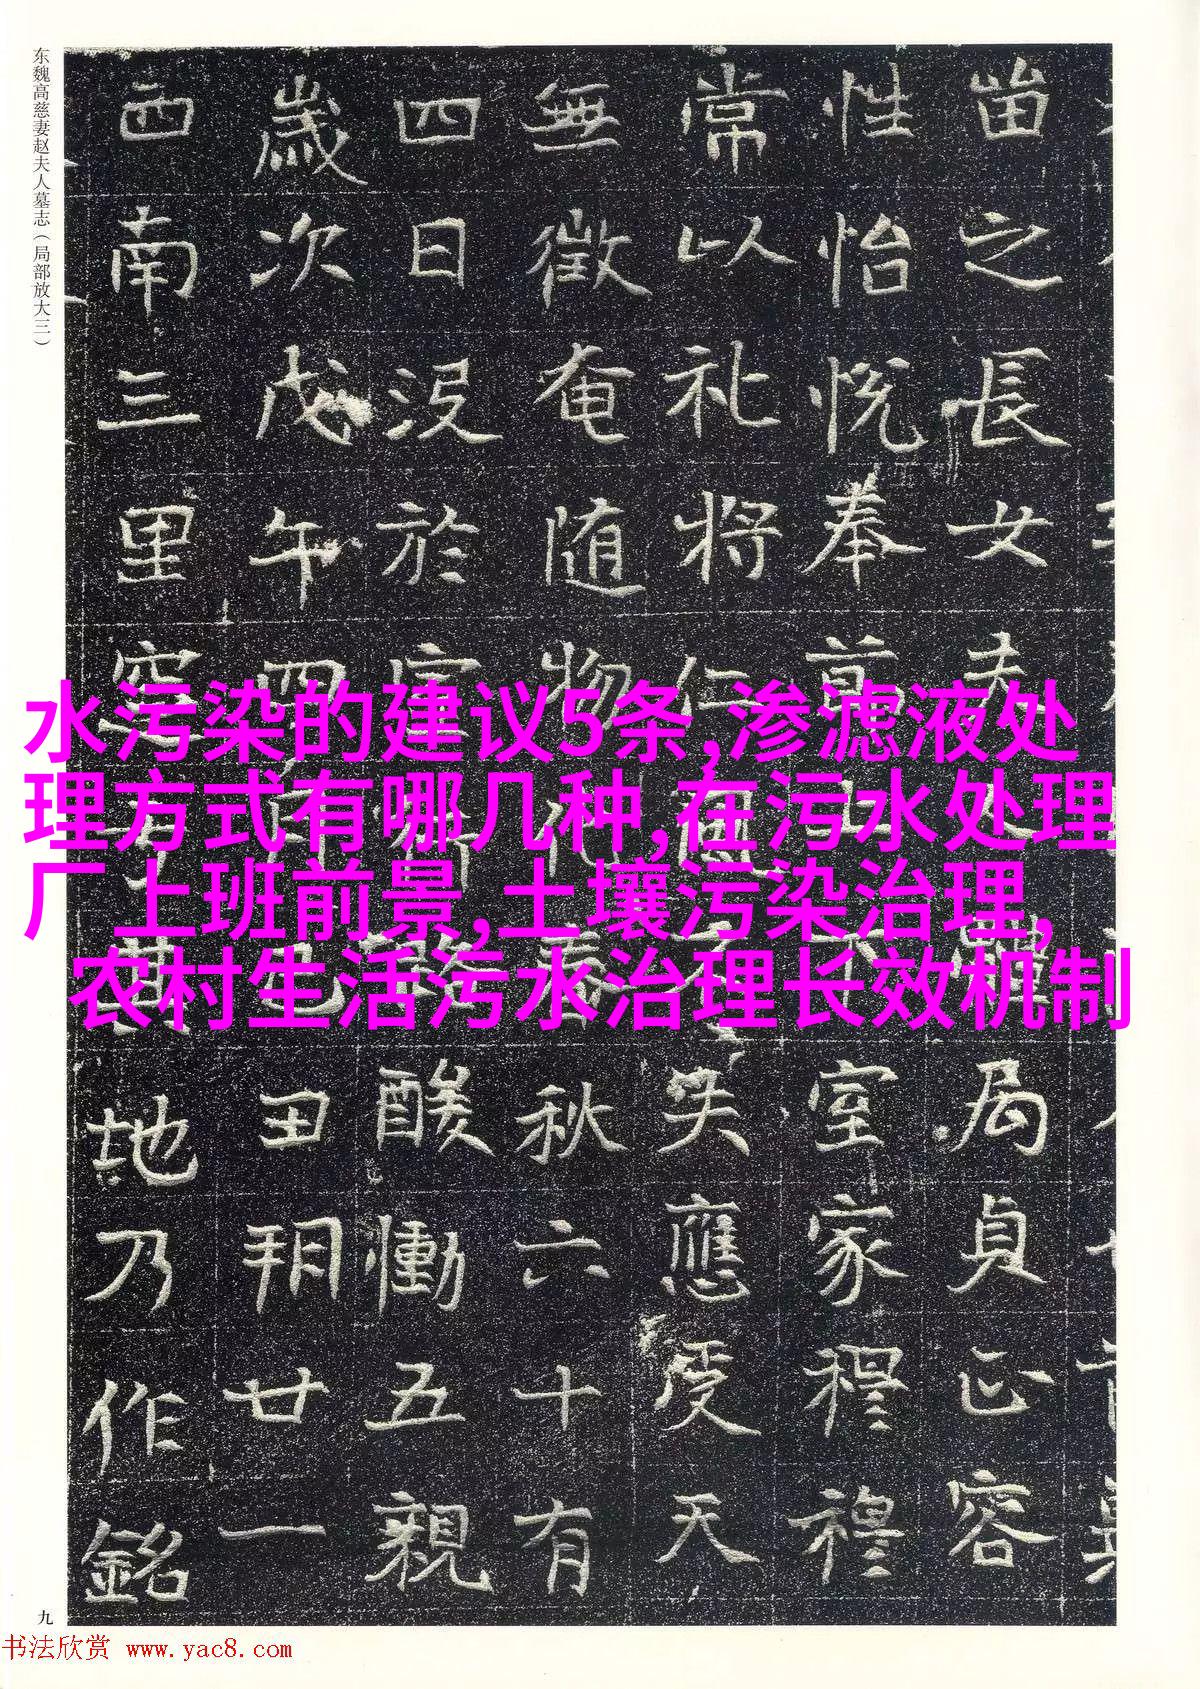 东魏高慈妻赵夫人墓志（局部放大三）
之長女夫 局貞正容
性怡悦奉 室家穆穆
常以礼將仁 失應受天
無徵奄随物化春秋六十有
四日没於官 酸慟五親
歲次戊午四月 丑朔廿一
西南三里 地乃作銘
水污染的建议5条,渗滤液处
理方式有哪几种,在污水处理
厂上班前景,土壤污染治理,
农村生活污水治理长效机制
九
书法欣赏 www.yac8.com